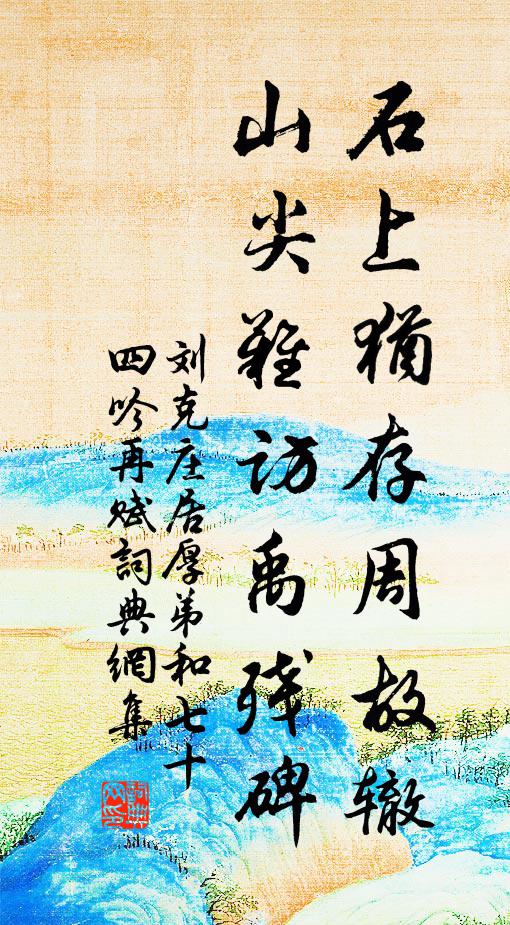 石上犹存周故辙
山尖难访禹残碑
刘克庄居厚弟和七十
四吟再赋詞典網集